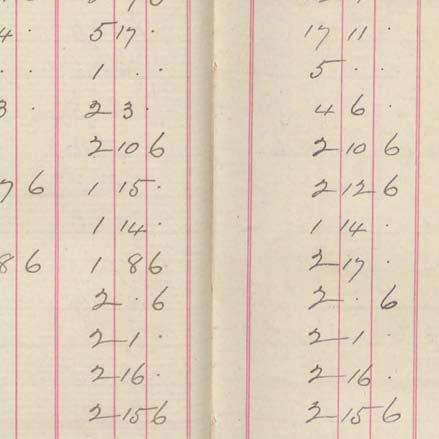 4 · 5 17 · 17 11 ·
· · 1 · · 5 · ·
3 · 2 3 · 4 6 ·
2 10 6 2 10 6
7 6 1 15 · 2 12 6
1 14 · 1 14 ·
8 6 1 8 6 2 17 ·
2 · 6 2 · 6
2 1 · 2 1 ·
2 16 · 2 16 ·
2 15 6 2 15 6